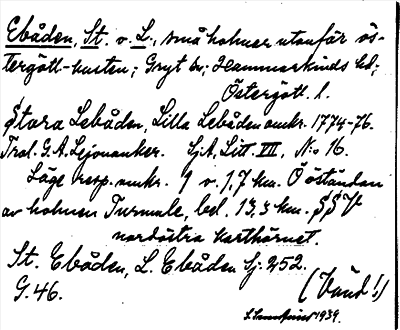 Ebåden, St. o. L., små holmar utanför ös-
tergött-kusten; Gryt sn; Hammarkinds hd;
Östergötl. l.
Stora Lebåden, Lilla Lebåden omkr. 1774-76.
Trol. G. A. Lejonanker. Sj.A, Litt VII, No 16.
Läge resp. omkr. 1 o. 1,7 km. Ö öständan
av holmen Turmulé, bel. 13,3 km. SSV
nordöstra karthörnet.
St. Ebåden, L. Ebåden Sj. 252.
G. 46. (Vänd!)
1939.